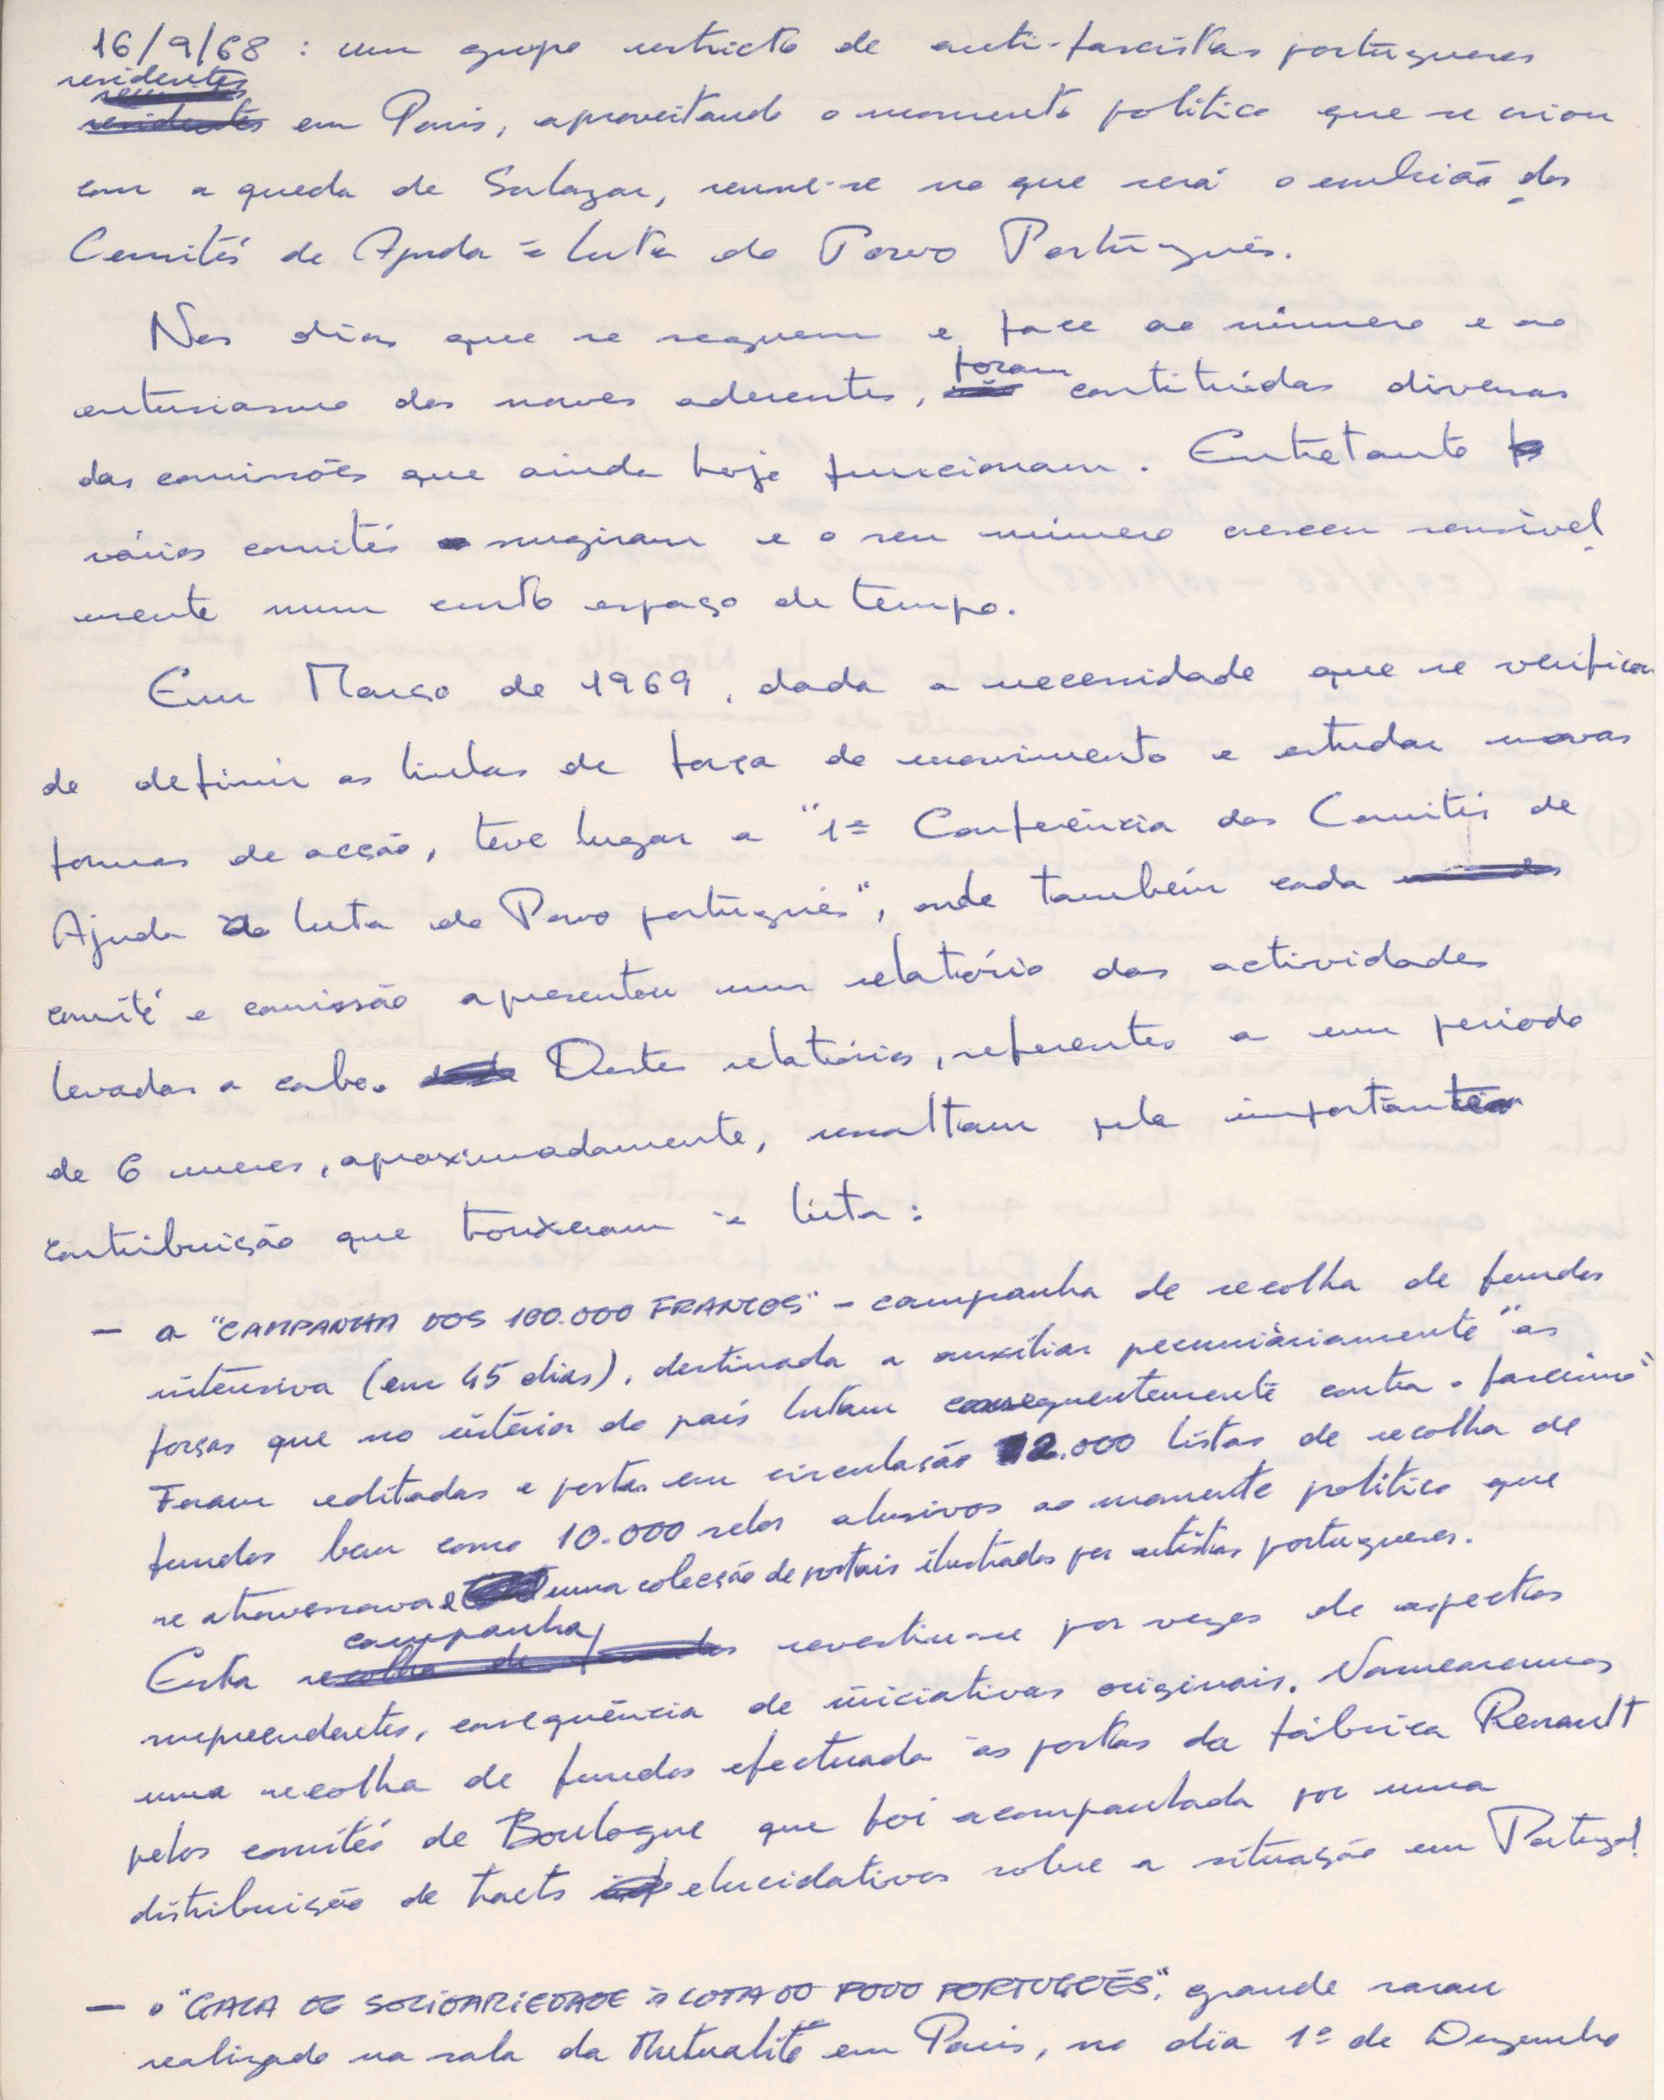 16/9/68 : um grupo restricto de anti-fascistas portugueses
residentes
em Paris, aproveitando o momento politico que se criou
com a queda de Salazar, reune-se no que será o embrião dos
Comités de Ajuda à luta do Povo Português.
Nos dias que se seguem e face ao número e ao
foram
entusiasmo dos novos aderentes, constituídas diversas
das comissões que ainda hoje funcionam. Entretanto
vários comités surgiram e o seu número cresceu sensivel
mente num curto espaço de tempo.
Em Março de 1969, dada a necessidade que se verificou
de definir as linhas de força do movimento e estudar novas
formas de acção, teve lugar a "1ª Conferência dos Comités de
Ajuda à luta do Povo português", onde também cada
comité e comissão apresentou um relatório das actividades
levadas a cabo. Destes relatórios, referentes a um periodo
de 6 meses, aproximadamente, ressaltam pela importante
contribuição que trouxeram à luta:
- a "CAMPANHA DOS 100.000 FRANCOS" - campanha de recolha de fundos
intensiva (em 45 dias), destinada a auxiliar pecuniàriamente "as
forças que no intérior do país lutam consequentemente contra o fascismo"
Foram editadas e postas em circulação 12.000 listas de recolha de
fundos bem como 10.000 selos alusivos ao momento politico que
se atravessava e uma colecção de postais ilustrados por artistas portugueses.
campanha
Esta revestiu-se por vezes de aspectos
surpreendentes, consequência de iniciativas originais. Nomearemos
uma recolha de fundos efectuada às portas da fábrica Renault
pelos comités de Boulogne que foi acompanhada por uma
distribuição de tracts elucidativos sobre a situação em Portugal.
- o "GALA DE SOLIDARIEDADE à LUTA DO POVO PORTUGUÊS", grande sarau
realizado na sala da Mutualité em Paris, no dia 1º de Dezembro